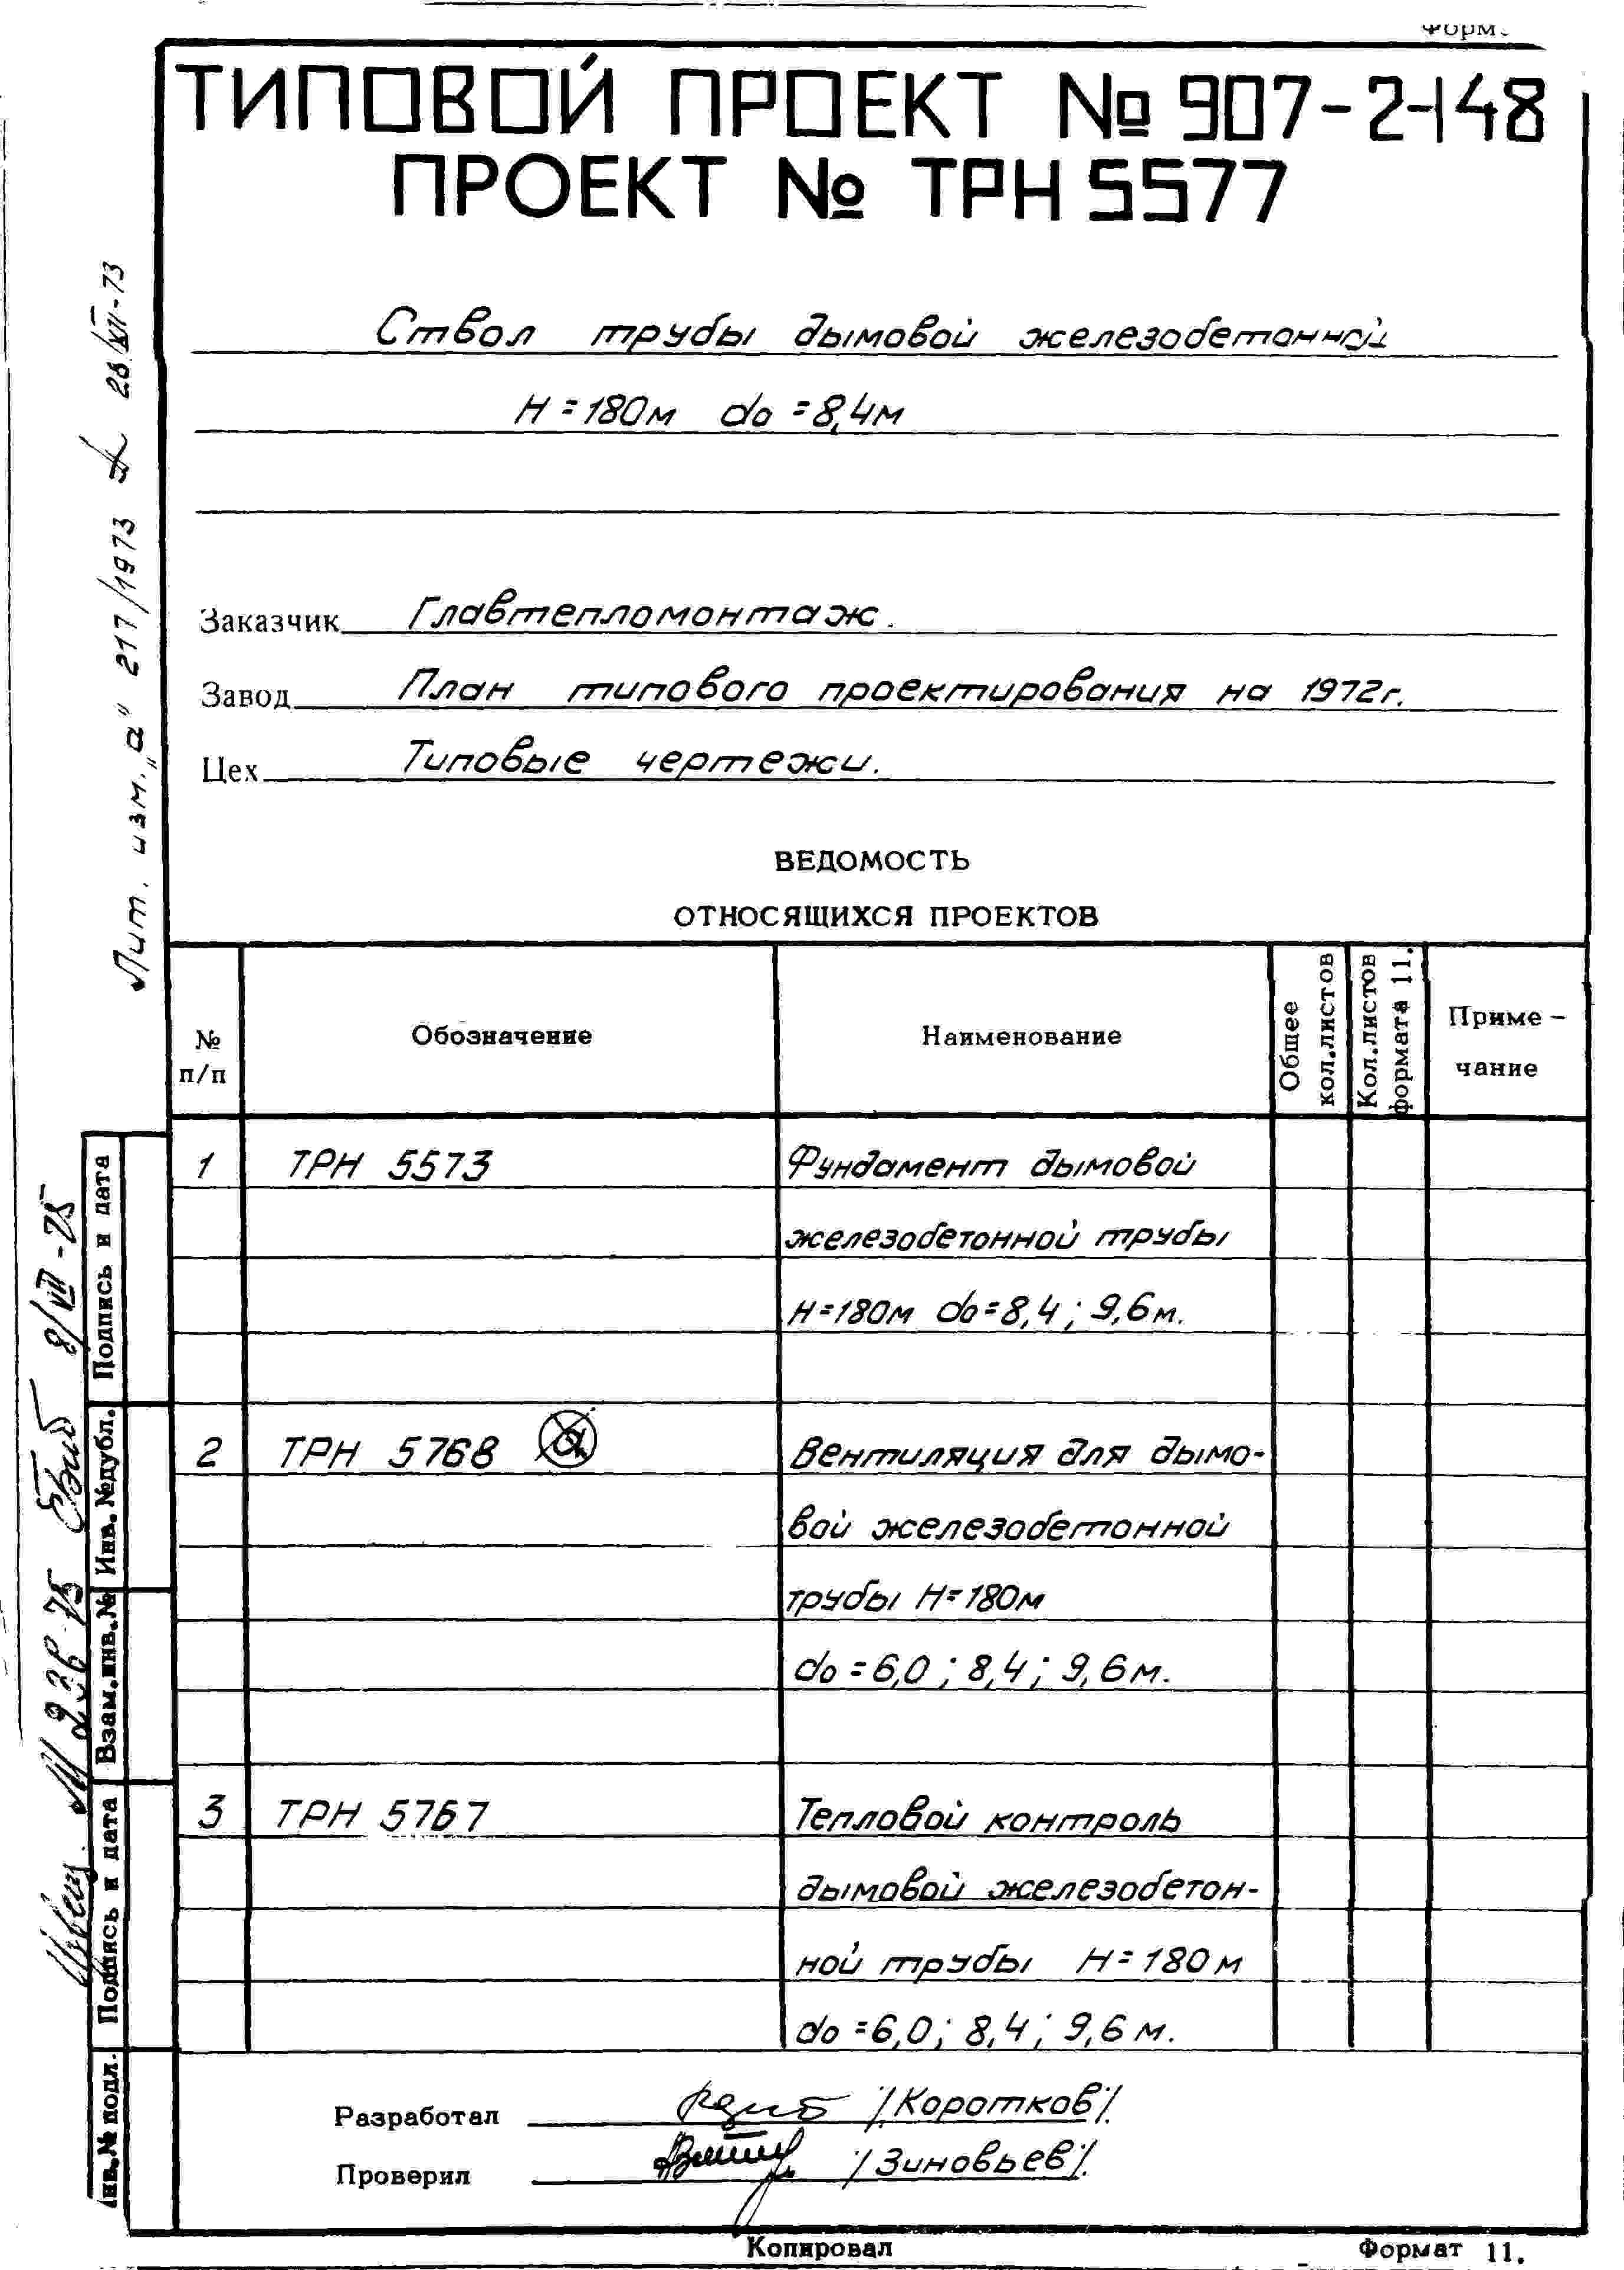 Форм.
ТИПОВОЙ ПРОЕКТ № 907-2-148
ПРОЕКТ № ТРН 5577
Ствол трубы дымовой железобетонной
H = 180м do = 8,4м
Заказчик Главтепломонтаж.
Завод План типового проектирования на 1972г.
Цех Типовые чертежи.
ВЕДОМОСТЬ
ОТНОСЯЩИХСЯ ПРОЕКТОВ
№ п/п
Обозначение
Наименование
Общее кол.листов
Кол.листов формата 11.
Приме-
чание
1 ТРН 5573 Фундамент дымовой
железобетонной трубы
H=180м do=8,4; 9,6м.
2 ТРН 5768 а Вентиляция для дымо-
вой железобетонной
трубы H=180м
do=6,0; 8,4; 9,6м.
3 ТРН 5767 Тепловой контроль
дымовой железобетон-
ной трубы H=180м
do=6,0; 8,4; 9,6м.
Разработал /Коротков/
Проверил /Зиновьев/
Копировал
Формат 11.
Лит. изм. „а" 217/1973 28/XII-73
Подпись и дата
Инв.№дубл.
Взам.инв.№
Подпись и дата
Инв.№ подл.
8/VII-75